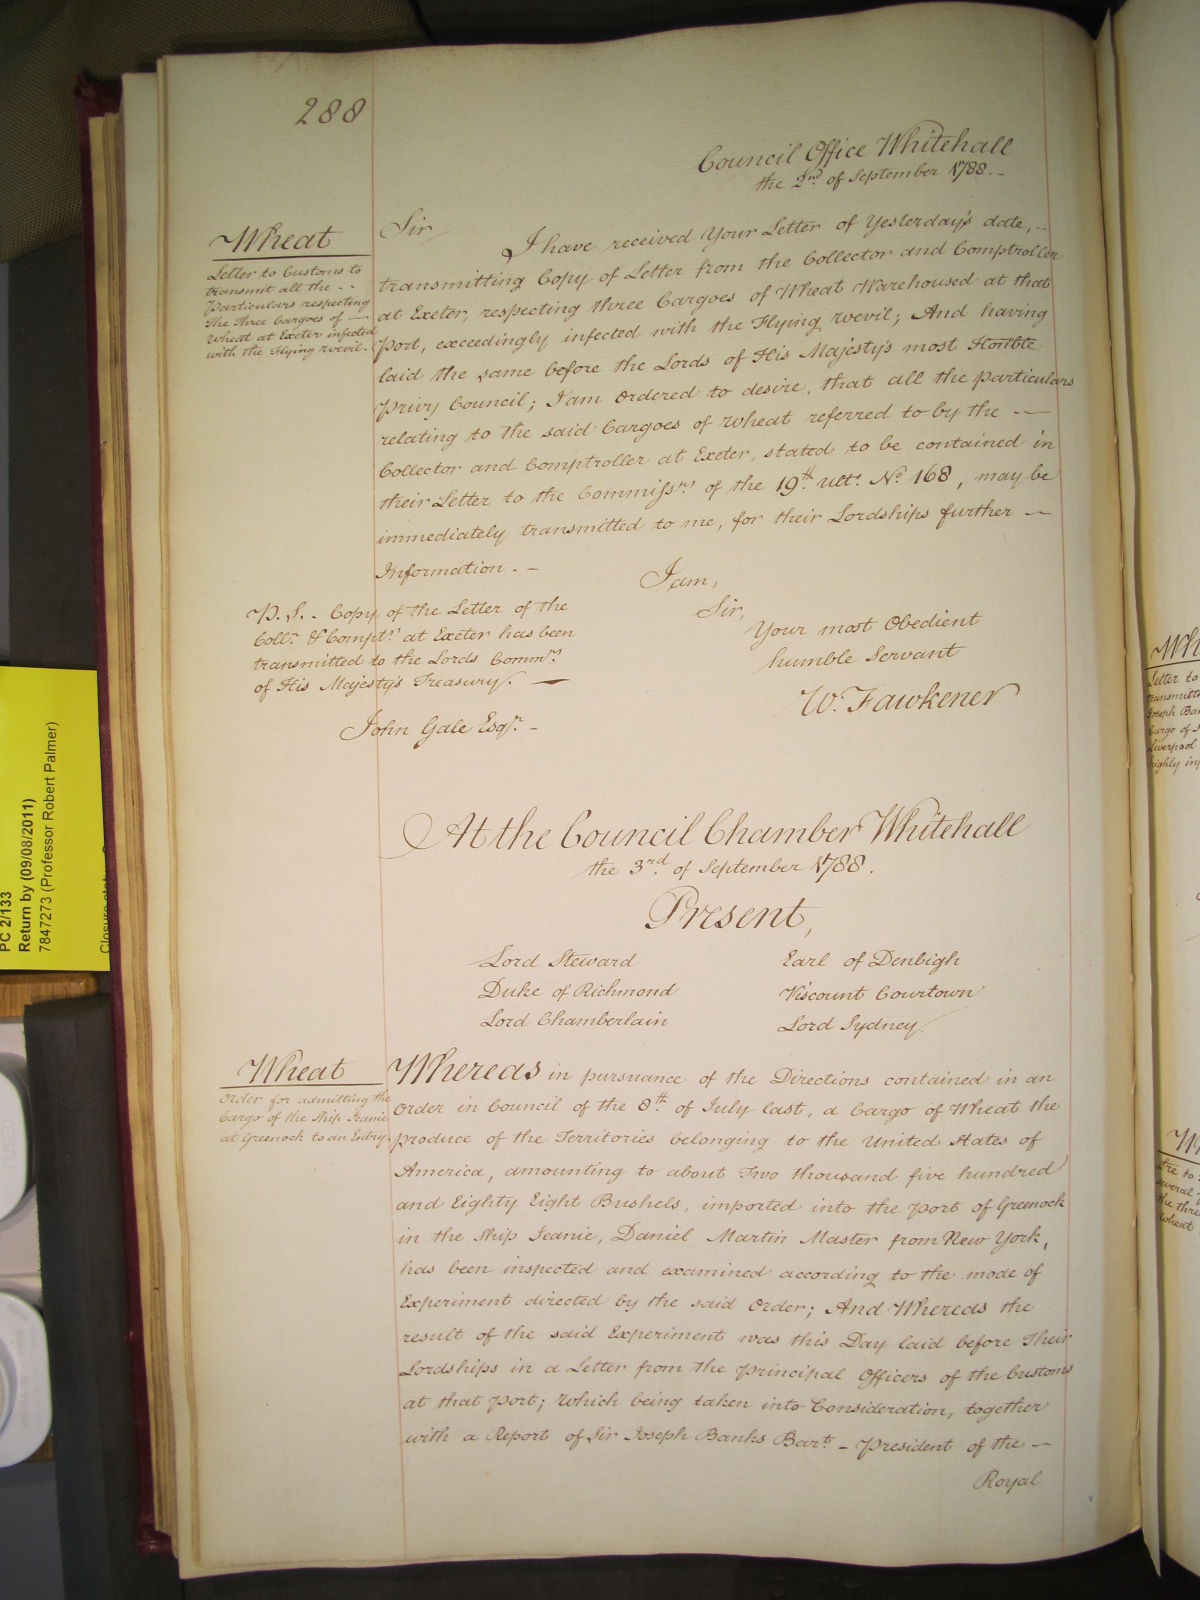 288
Council Office Whitehall
the 2nd. of September 1788. -
Wheat
Letter to Customs to
transmit all the - -
Particulars respecting
the three Cargoes of —
Wheat at Exeter infected
with the Flying Wevil. -
Sir/
I have received Your Letter of Yesterday's date, --
transmitting Copy of Letter from the Collector and Comptroller
at Exeter, respecting three Cargoes of Wheat Warehoused at that
Port, exceedingly infected with the Flying Wevil; And having
laid the same before the Lords of His Majesty's most Honble
Privy Council; I am Ordered to desire, that all the particulars
relating to the said Cargoes of Wheat referred to by the -—
Collector and Comptroller at Exeter, stated to be contained in
their Letter to the Commissrs. of the 19th. ulto. No. 168, may be
immediately transmitted to me, for their Lordships further —
Information. -
I am,
Sir,
Your most Obedient
humble Servant
W. Fawkener
P. S. - Copy of the Letter of the
Collr. & Comptr. at Exeter has been
transmitted to the Lords Commrs.
of His Majesty's Treasury. —
John Gale Esqr. -
At the Council Chamber Whitehall
the 3rd. of September 1788.
Present,
Lord Steward
Duke of Richmond
Lord Chamberlain
Earl of Denbigh
Viscount Courtown
Lord Sydney
Wheat
Order for admitting the
Cargo of the Ship Jeanie
at Greenock to an Entry.
Whereas in pursuance of the Directions contained in an
Order in Council of the 8th. of July last, a Cargo of Wheat the
produce of the Territories belonging to the United States of
America, amounting to about Two thousand five hundred
and Eighty Eight Bushels, imported into the Port of Greenock
in the Ship Jeanie, Daniel Martin Master from New York,
has been inspected and examined according to the mode of
Experiment directed by the said Order; And Whereas the
result of the said Experiment was this Day laid before Their
Lordships in a Letter from the Principal Officers of the Customs
at that Port; Which being taken into Consideration, together
with a Report of Sir Joseph Banks Bart. - President of the —
Royal
PC 2/133
Return by (09/08/2011)
7847273 (Professor Robert Palmer)
Letter to
Joseph Ban
Cargo of
Liverpool
highly inf